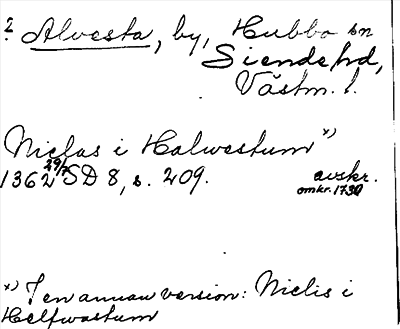 2 Alvesta, by, Hubbo sn
Siende hd,
Västm. l.
Niclas i Halwestum x)
1362 29/7 SD 8, s. 209. avskr.
omkr. 1730
x) I en annan version: Niclis i
Helfwastum